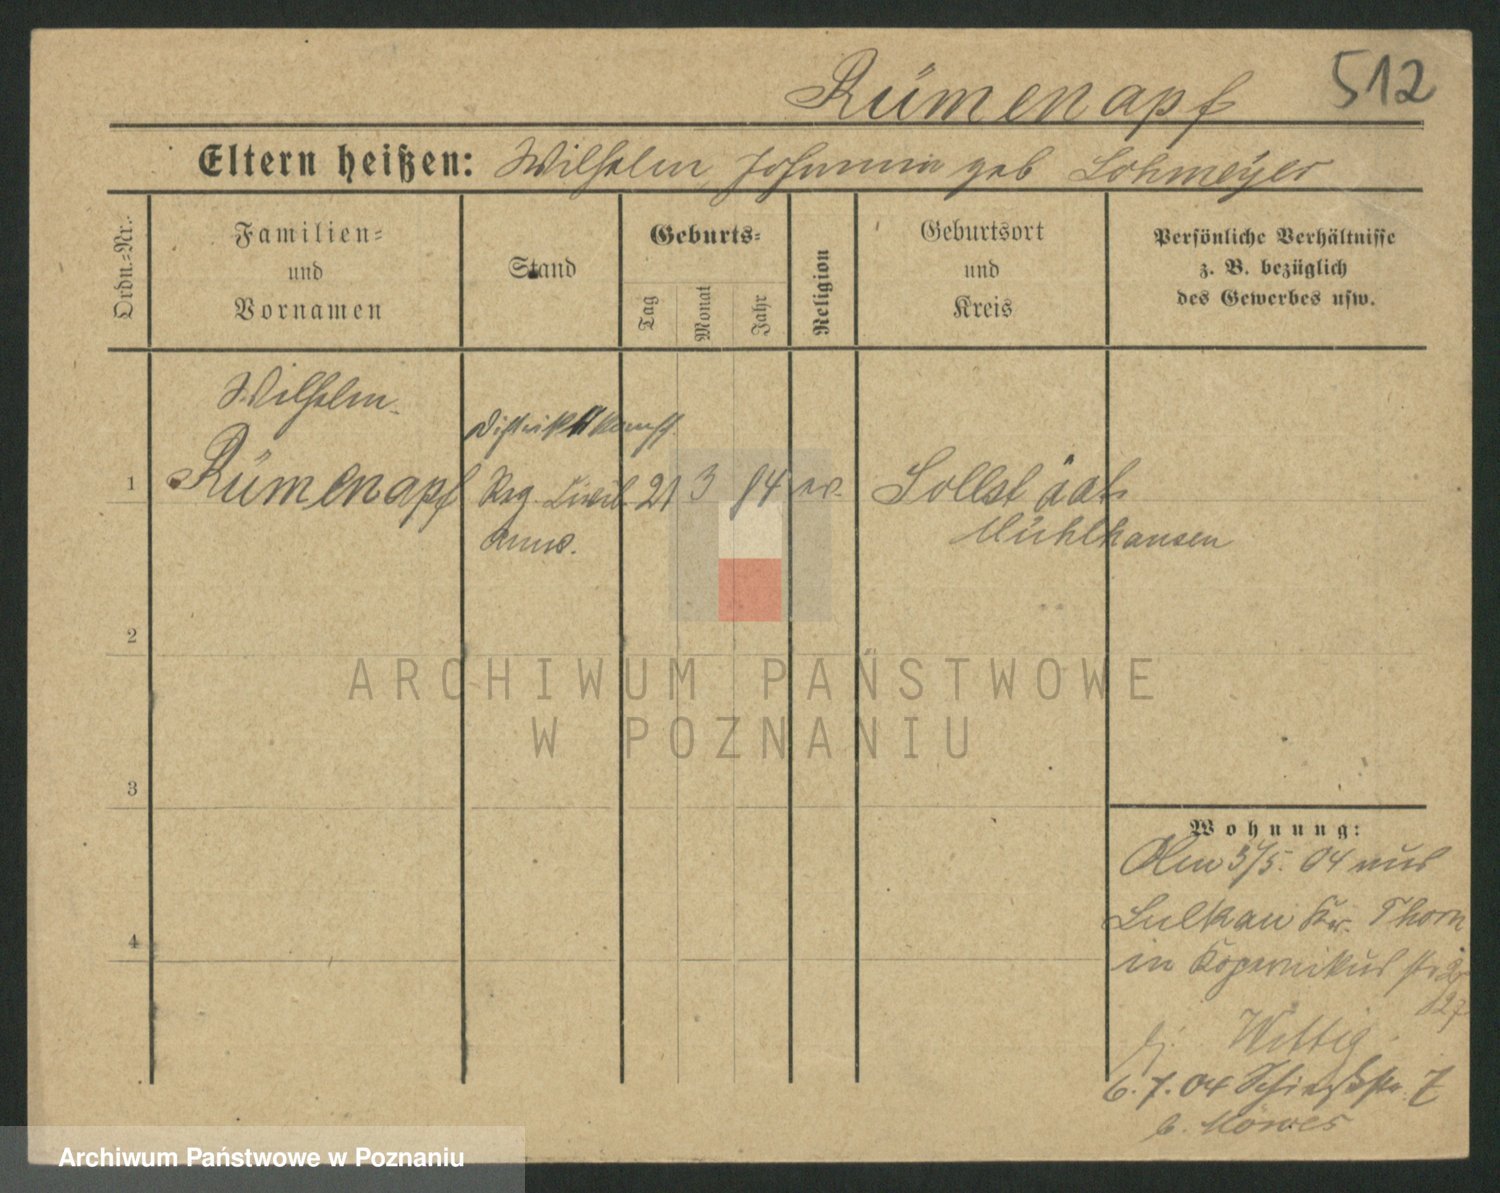 Rümenapf 512
Eltern heißen: Wilhelm, Johanna geb Lohmeyer
Ordn.-Nr.
Familien-
und
Vornamen
Stand
Geburts-
Tag
Monat
Jahr
Religion
Geburtsort
und
Kreis
Persönliche Verhältnisse
z. B. bezüglich
des Gewerbes usw.
Wilhelm
1 Rümenapf Reg. 21 3 84 ev. Sollstädt
Mühlhausen
2
3
4
Wohnung:
Am 3/5. 04 aus
Lulkau Kr. Thorn
in Kopernikusstr
b. Wittig
6. 7. 04 7
b. Möwes
ARCHIWUM PAŃSTWOWE
W POZNANIU
Archiwum Państwowe w Poznaniu